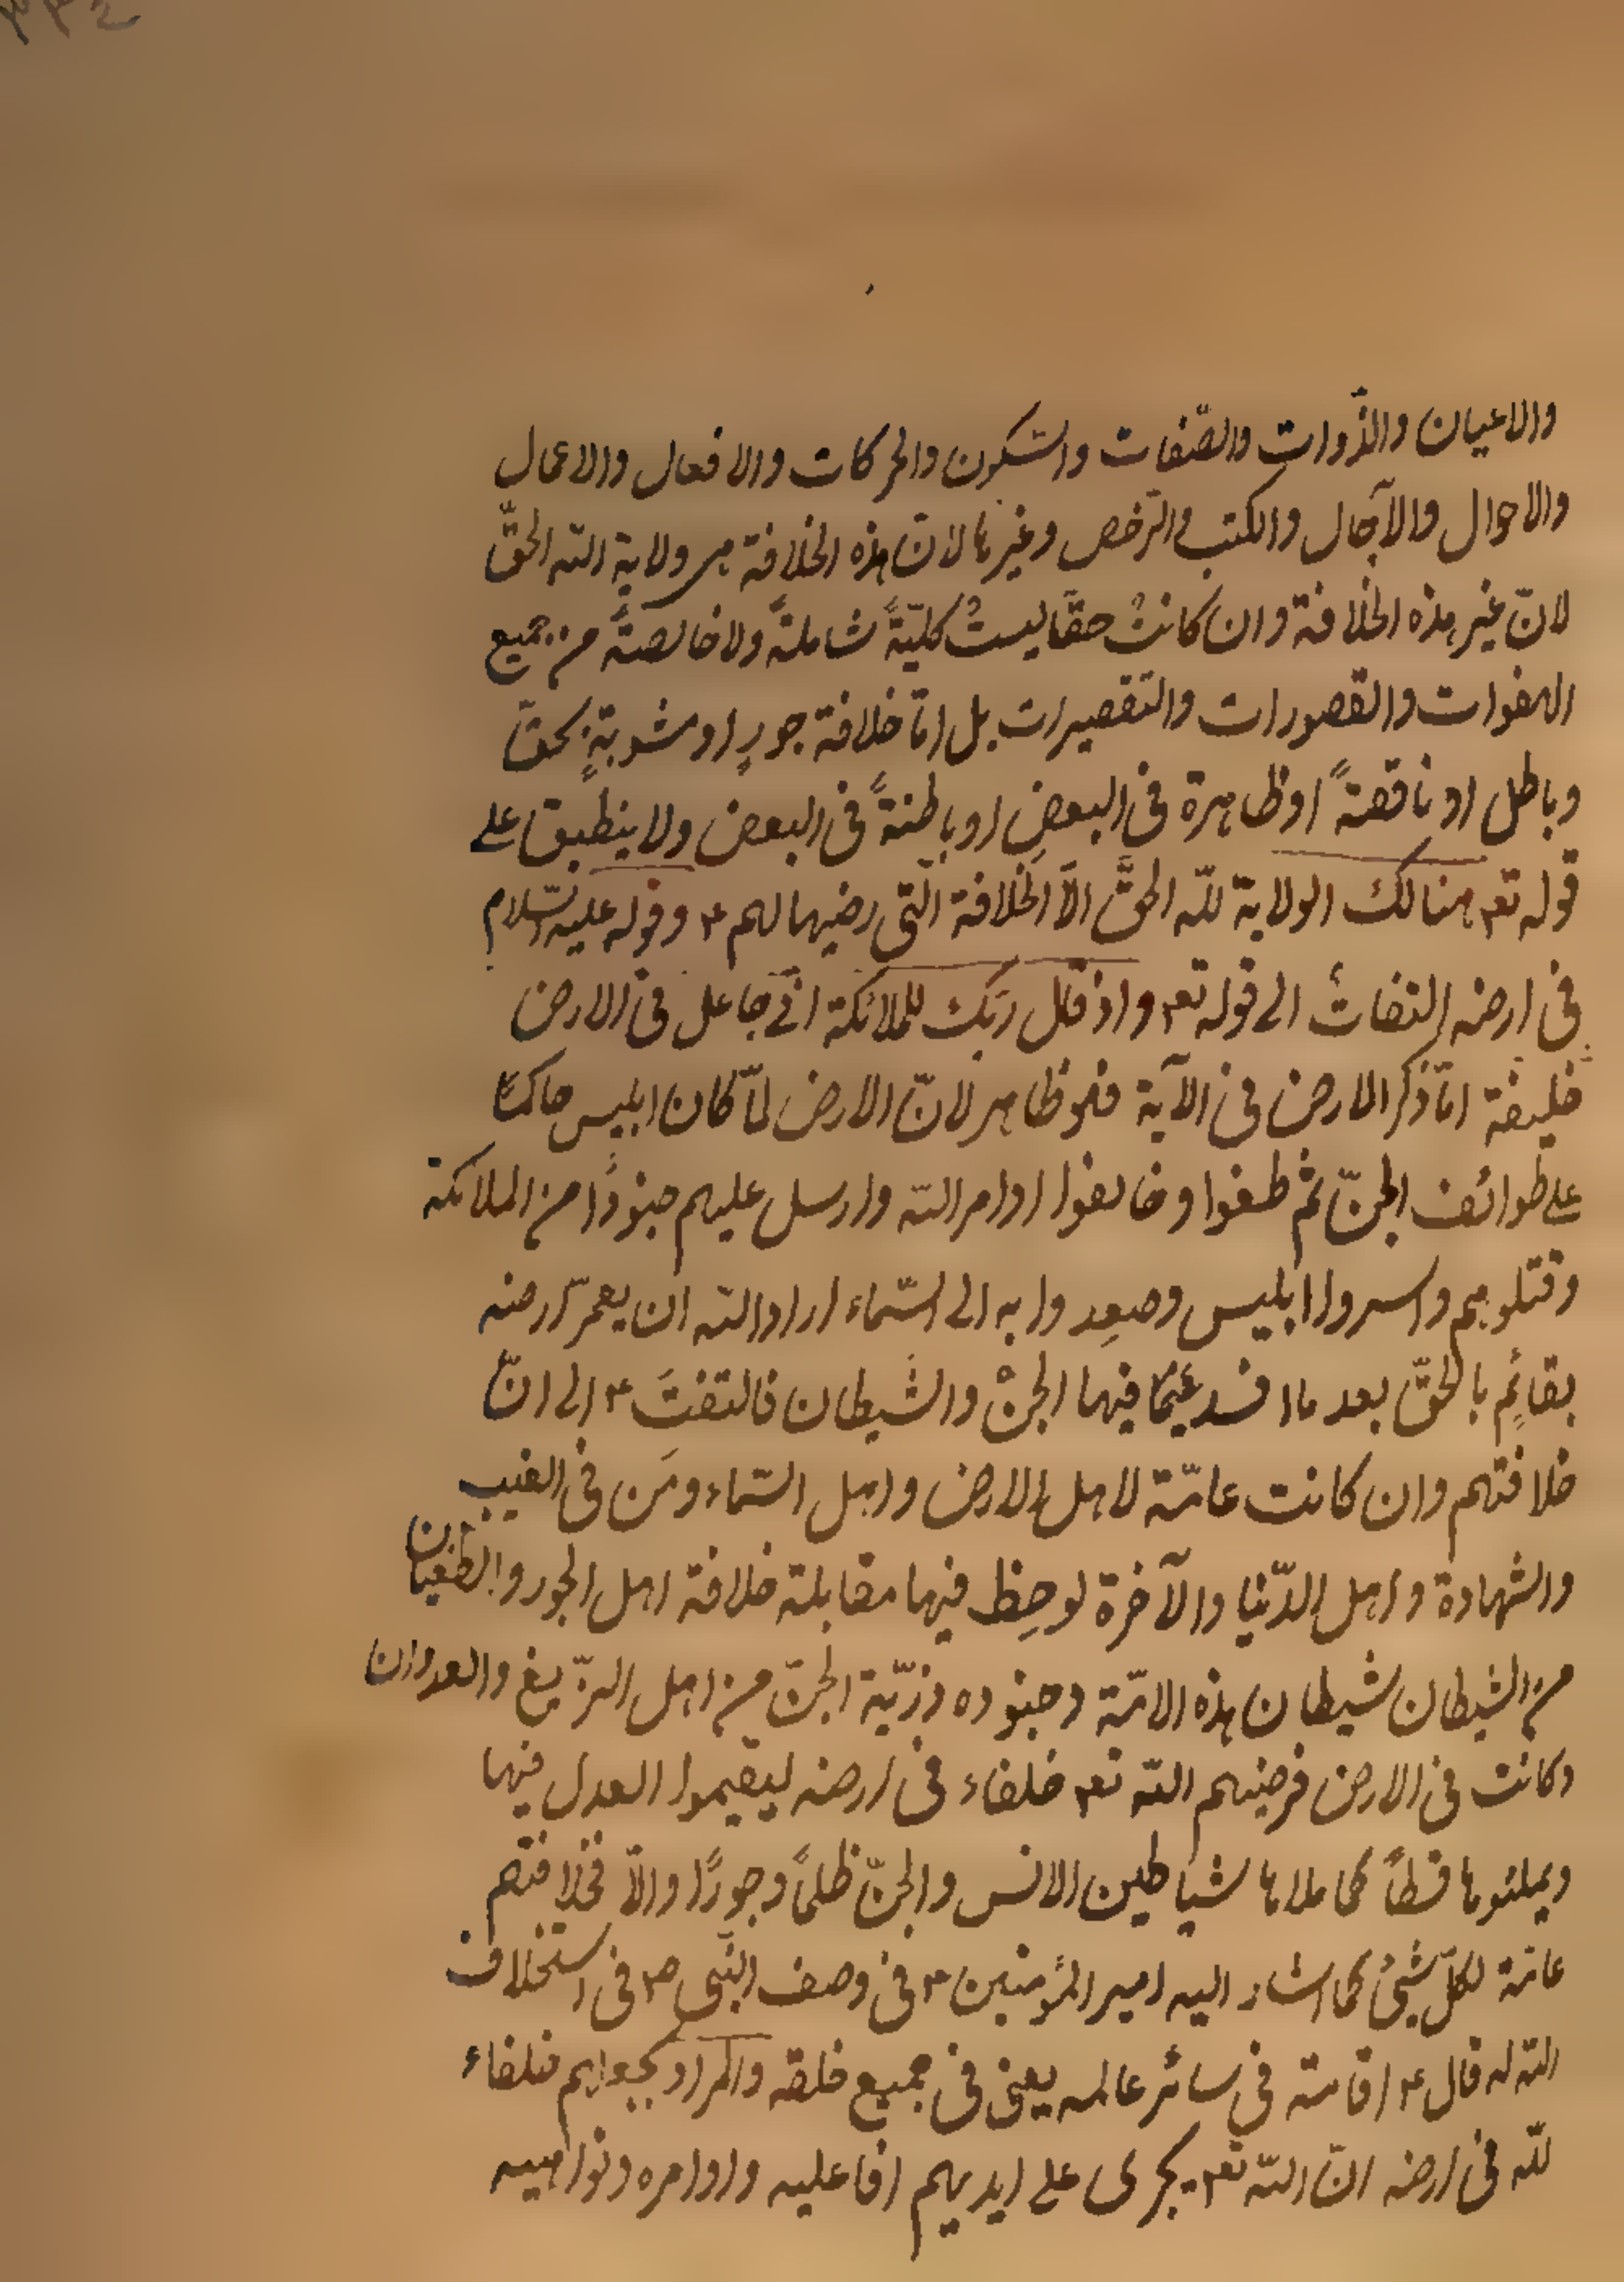 ٣٣٤
والاعيان والذّوات والصّفات والسّكون والحركات والافعال والاعمال
والاحوال والآجال والكتب والرّخص وغيرها لانّ هذه الخلافة هى ولاية اللّه الحقّ
لانّ غير هذه الخلافة وان كانتْ حقّاً ليستْ كليّةً شاملةً ولا خالصةً من جميع
الهفوات والقصورات والتقصيرات بل امّا خلافة جورٍ او مشوبةٍ بحقّ
وباطل او ناقصةً او ظاهرة فى البعضِ او باطنةً فى البعض ولا ينطبق على
قوله تع هنالك الولاية للّه الحقّ الّا الخلافة الّتى رضيها لهم ع وقوله عليه السّلام
فى ارضه التفاتٌ الى قوله تع واذ قال ربّك للملائكة انّى جاعل فى الارض
خليفة امّا ذكر الارض فى الآية فهو ظاهر لانّ الارض لمّا كان ابليس حاكمًا
على طوائف الجنّ ثم طغوا وخالفوا اوامر اللّه وارسل عليهم جنودًا من الملائكة
وقتلوهم واسروا ابليس وصعِدوا به الى السّماء اراد اللّه ان يعمّر ارضه
بقائمٍ بالحقّ بعد ما افسد فيها الجنّ والشّيطان فالتفتَ ع الى انّ
خلافتهم وان كانت عامّة لاهل الارض واهل السّماء ومَن فى الغيب
والشهادة واهل الدّنيا والآخرة لوحِظ فيها مقابلة خلافة اهل الجور والطغيان
من الشيطان شيطان هذه الامّة وجنوده وذرّية الجنّ من اهل الزّيغ والعدوان
وكانت فى الارض فرضيهم اللّه تع خلفاء فى ارضه ليقيموا العدل فيها
ويملئوها قسطاً كما ملاها شياطين الانس والجنّ ظلماً وجورًا والّا فخلافتهم
عامّة لكلّ شيئ كما اشار اليه امير المؤمنين ع فى وصف النّبى ص فى استخلاف
اللّه له قال ع اقامه فى سائر عالمه يعنى فى جميع خلقه والمراد بجعلهم خلفاء
للّه فى ارضه انّ اللّه تع يجرى على ايديهم افاعليه واوامره ونواهيه